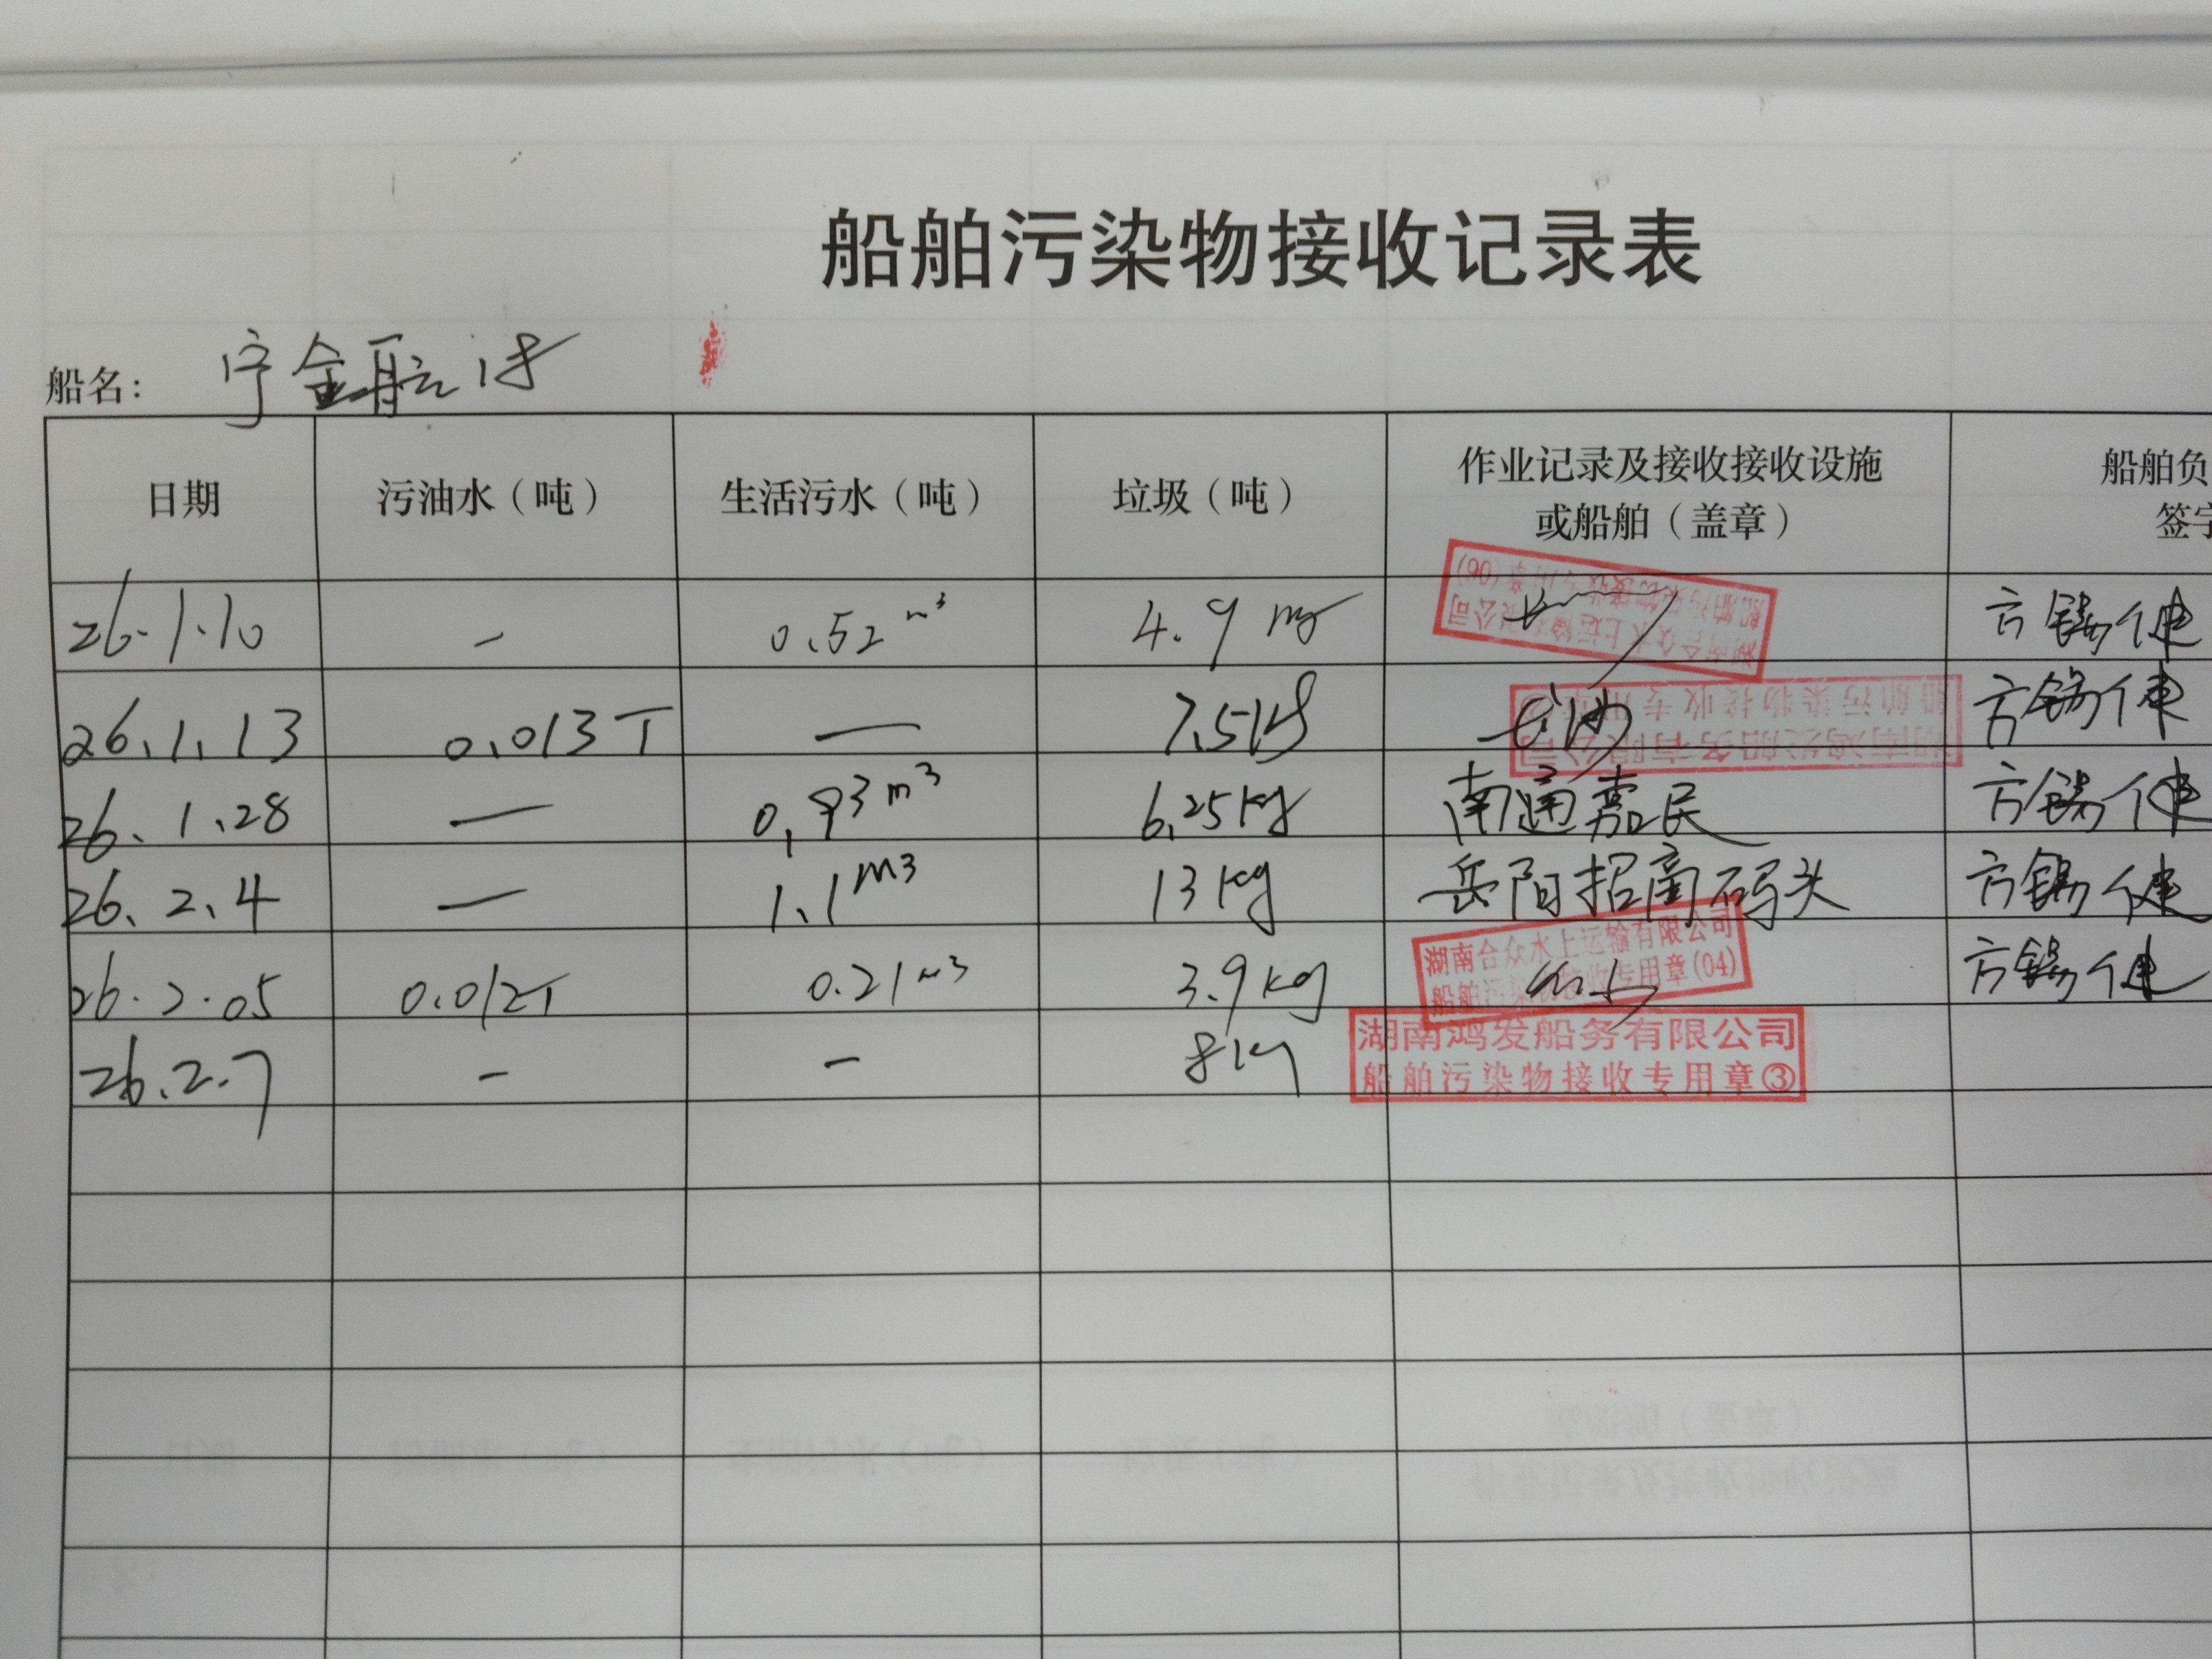 船舶污染物接收记录表
船名： 宁金航18
日期 污油水（吨） 生活污水（吨） 垃圾（吨） 作业记录及接收接收设施或船舶（盖章） 船舶负 签字
26.1.10 - 0.52 m³ 4.9 kg 方锡健
湖南合众水上运输有限公司
船舶污染物接收专用章(06)
26.1.13 0.013T — 7.5kg 长沙 方锡健
湖南鸿发船务有限公司
船舶污染物接收专用章
26.1.28 — 0.93m³ 6.25kg 南通嘉民 方锡健
26.2.4 — 1.1m³ 13kg 岳阳招商码头 方锡健
26.2.05 0.012T 0.21m³ 3.9kg 方锡健
湖南合众水上运输有限公司
船舶污染物接收专用章(04)
26.2.7 - - 8kg
湖南鸿发船务有限公司
船舶污染物接收专用章③